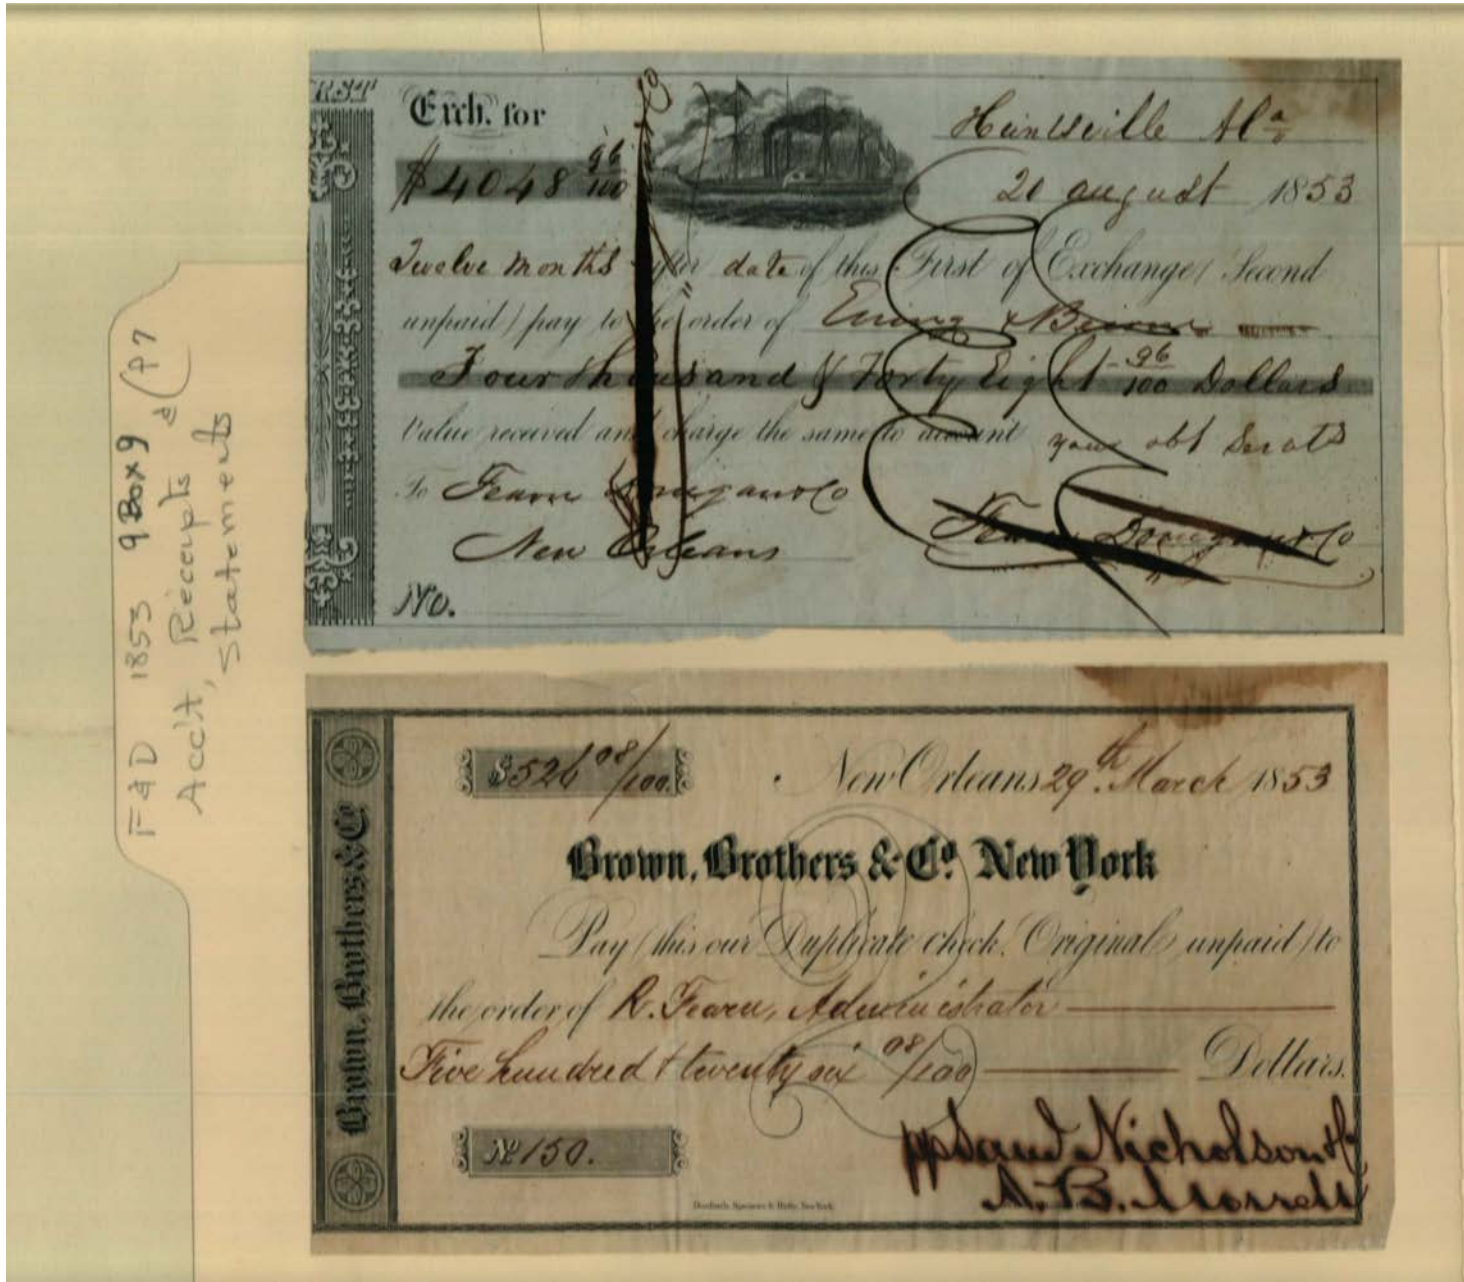 F & D 1853 9 Box 9
Acct, Receipts & (P7
Statements
RST
Exch. for
Huntsville Ala
$4048 96/100
20 august 1853
Twelve months after date of this First of Exchange (Second
unpaid) pay to the order of Ewing &
Four thousand & Forty Eight 96/100 Dollars
Value received and charge the same to account your obt Servts
To Fearn Donegan & Co
Fearn Donegan & Co
New Orleans
No.
Brown, Brothers & Co
$526 08/100
New Orleans 29th March 1853
Brown, Brothers & Co. New York
Pay (this our Duplicate check. Original unpaid) to
the order of R. Fearn, Administrator
Five hundred & twenty six 08/100 Dollars.
No 150.
pp Saml Nicholson & Co
A. B. Morrell